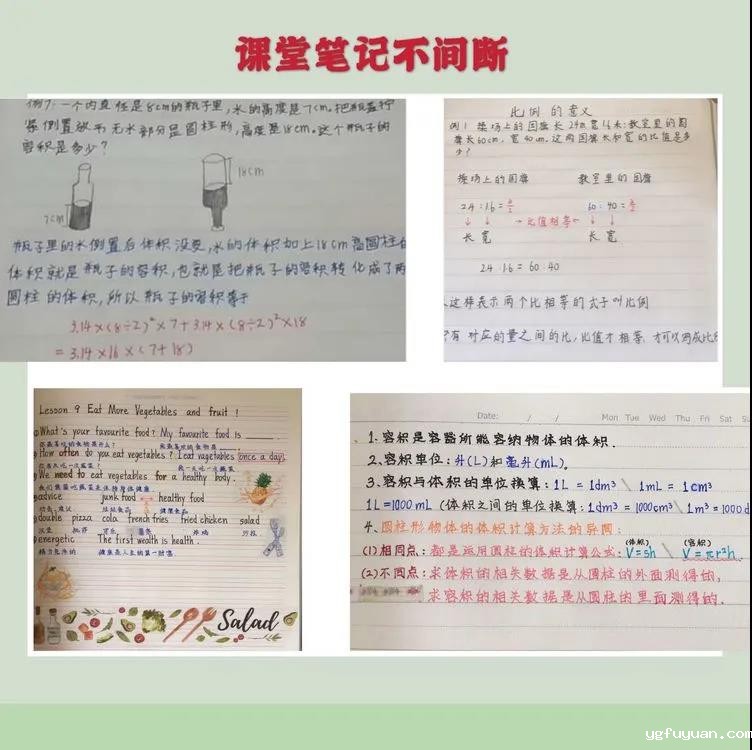 课堂笔记不间断
例7:一个内直径是8cm的瓶子里,水的高度是7cm.把瓶盖拧
紧倒置放平无水部分是圆柱形,高度是18cm.这个瓶子的
容积是多少?
18cm
7cm
瓶子里的水倒置后体积没变,水的体积加上18cm高圆柱的
体积就是瓶子的容积,也就是把瓶子的容积转化成了两
圆柱的体积,所以瓶子的容积等于
3.14×(8÷2)²×7+3.14×(8÷2)²×18
=3.14×16×(7+18)
比例的意义
例1 操场上的国旗长2.4m宽1.6米;教室里的国
旗长60cm,宽40cm.这两面国旗长和宽的比值是多
少?
操场上的国旗 教室里的国旗
2.4:1.6=3/2 60:40=3/2
↓ ↓ →比值相等← ↓ ↓
长 宽 长 宽
2.4:1.6=60:40
这样表示两个比相等的式子叫比例
只有对应的量之间的比,比值才相等,才可以组成比例
Lesson 9 Eat More Vegetables and fruit!
What's your favourite food? My favourite food is ____.
你最喜欢的食物是什么? 我最喜欢的食物是
How often do you eat vegetables? I eat vegetables once a day.
你多久吃一次蔬菜? 我一天吃一次蔬菜
We need to eat vegetables for a healthy body.
我们需要吃蔬菜来保持身体健康
advice junk food healthy food
垃圾食品 健康食品
double pizza cola french fries fried chicken salad
比萨 可乐 薯条 炸鸡 沙拉
energetic The first wealth is health.
精力充沛的 健康是人生的第一财富
Salad
Date: / / Mon Tue Wed Thu Fri Sat Su
1.容积是容器所能容纳物体的体积.
2.容积单位:升(L)和毫升(mL)。
3.容积与体积的单位换算:1L=1dm³ \ 1mL=1cm³
1L=1000mL(体积之间的单位换算:1dm³=1000cm³ \ 1m³=1000d
4.圆柱形物体的体积计算方法的异同:
(1)相同点:都是运用圆柱的体积计算公式:(体积)V=sh \ (容积)V=πr²h.
(2)不同点:求体积的相关数据是从圆柱的外面测得的,
求容积的相关数据是从圆柱的里面测得的.
ygfuyuan.com